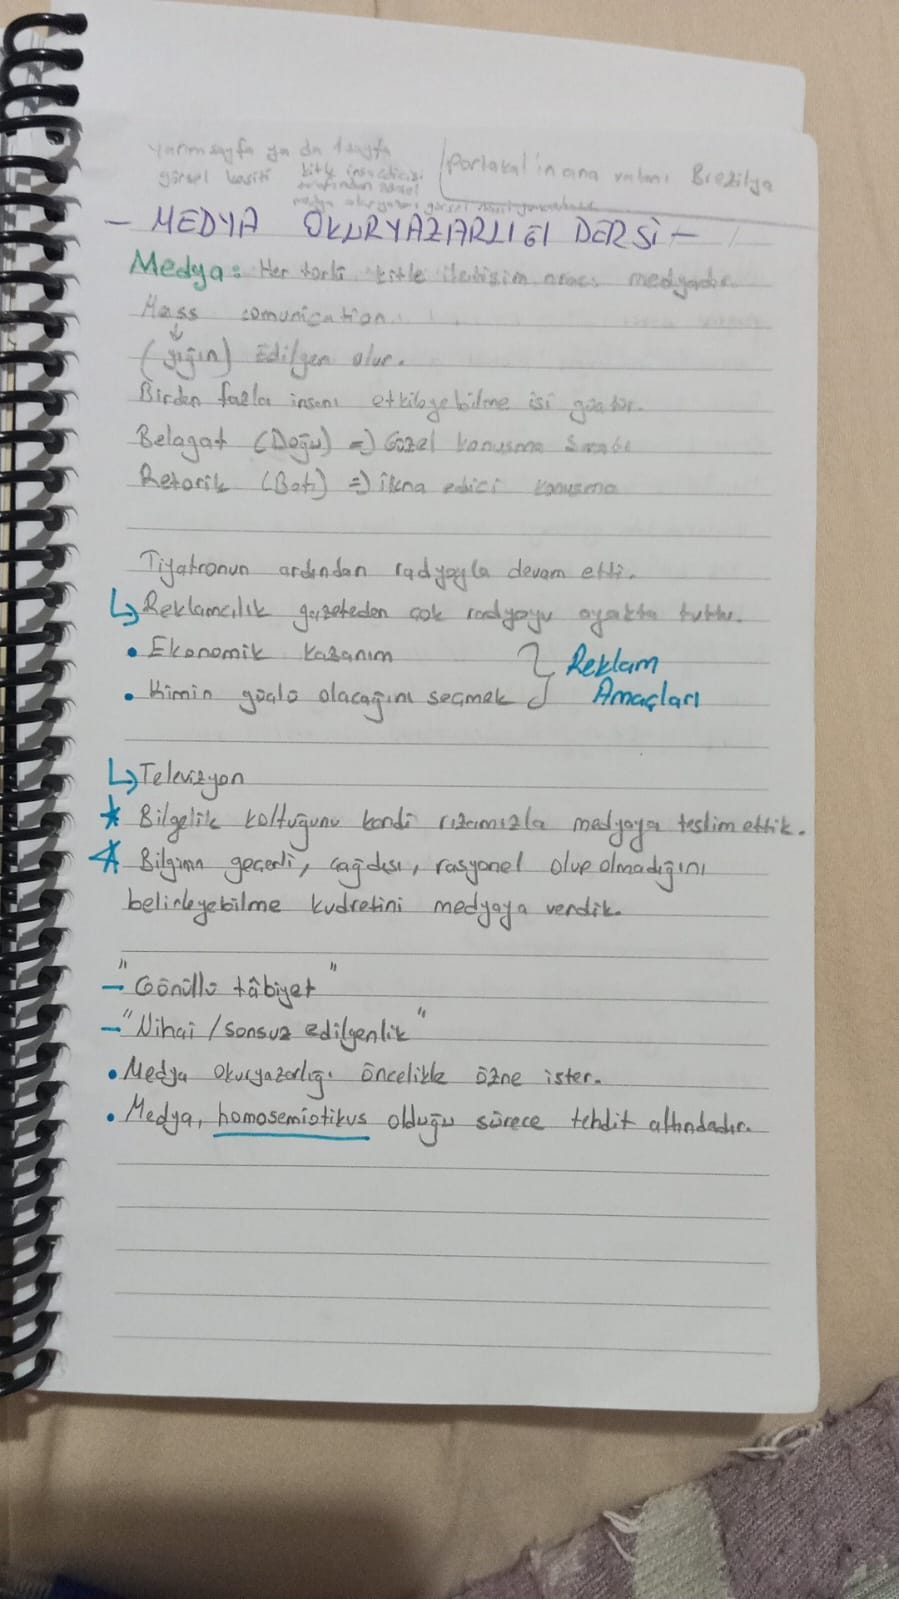 yarım sayfa ya da 1 sayfa
görsel kesiti
Portakal'ın ana vatanı Brezilya
- MEDYA OKURYAZARLIĞI DERSİ -
Medya: Her türlü kitle iletişim aracı medyadır.
Mass comunication
(yığın) Edilgen olur.
Birden fazla insanı etkileyebilme işi güçtür.
Belagat (Doğu) => Güzel konuşma sanatı
Retorik (Batı) => İkna edici konuşma
Tiyatronun ardından radyoyla devam etti.
↳ Reklamcılık gazeteden çok radyoyu ayakta tuttu.
• Ekonomik kazanım
• Kimin güçlü olacağını seçmek
Reklam
Amaçları
↳ Televizyon
★ Bilgelik koltuğunu kendi rızamızla medyaya teslim ettik.
★ Bilginin geçerli, çağdışı, rasyonel olup olmadığını
belirleyebilme kudretini medyaya verdik.
- "Gönüllü tâbiyet"
- "Nihai / sonsuz edilgenlik"
• Medya Okuryazarlığı öncelikle özne ister.
• Medya, homosemiotikus olduğu sürece tehdit altındadır.